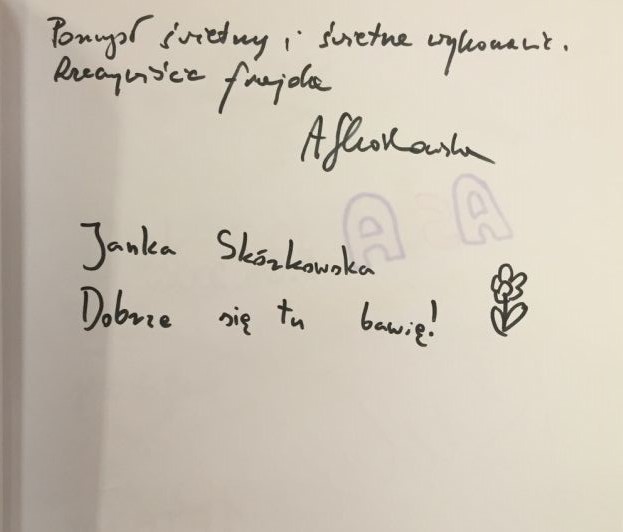 Pomysł świetny i świetne wykonanie.
Rzeczywiście frajda
Janka Skórkowska
Dobrze się tu bawię!
A A